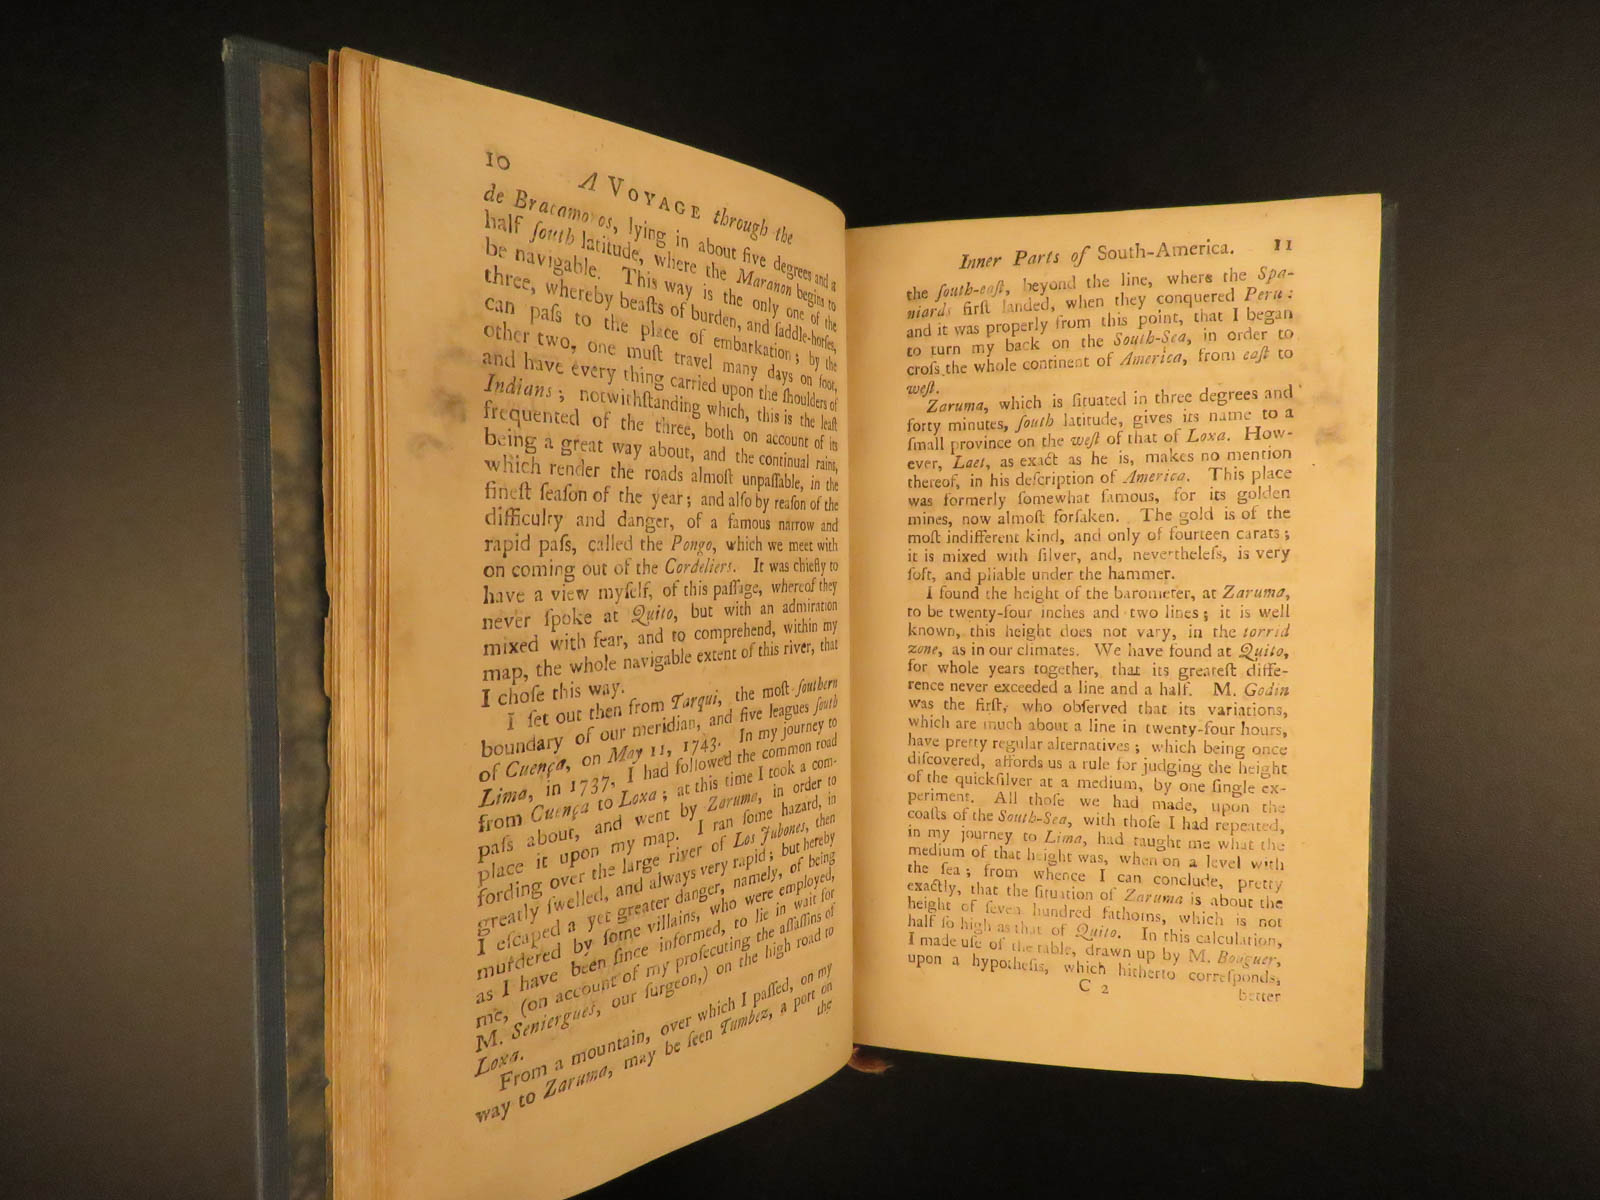 10 A VOYAGE through the
de Bracamoros, lying in about five degrees and a
half ſouth latitude, where the Maranon begins to
be navigable. This way is the only one of the
three, whereby beaſts of burden, and ſaddle-horſes,
can paſs to the place of embarkation; by the
other two, one muſt travel many days on foot,
and have every thing carried upon the ſhoulders of
Indians; notwithſtanding which, this is the leaſt
frequented of the three, both on account of its
being a great way about, and the continual rains,
which render the roads almoſt unpaſſable, in the
fineſt ſeaſon of the year; and alſo by reaſon of the
difficulty and danger, of a famous narrow and
rapid paſs, called the Pongo, which we meet with
on coming out of the Cordeliers. It was chiefly to
have a view myſelf, of this paſſage, whereof they
never ſpoke at Quito, but with an admiration
mixed with fear, and to comprehend, within my
map, the whole navigable extent of this river, that
I choſe this way.
I ſet out then from Tarqui, the moſt ſouthern
boundary of our meridian, and five leagues ſouth
of Cuença, on May 11, 1743. In my journey to
Lima, in 1737, I had followed the common road
from Cuença to Loxa; at this time I took a com-
paſs about, and went by Zaruma, in order to
place it upon my map. I ran ſome hazard, in
fording over the large river of Los Jubones, then
greatly ſwelled, and always very rapid; but hereby
I eſcaped a yet greater danger, namely, of being
murdered by ſome villains, who were employed,
as I have been ſince informed, to lie in wait for
me, (on account of my proſecuting the aſſaſſins of
M. Seniergues, our ſurgeon,) on the high road to
Loxa.
From a mountain, over which I paſſed, on my
way to Zaruma, may be ſeen Tumbez, a port on
the
Inner Parts of South-America. 11
the ſouth-eaſt, beyond the line, where the Spa-
niards firſt landed, when they conquered Peru:
and it was properly from this point, that I began
to turn my back on the South-Sea, in order to
croſs the whole continent of America, from eaſt to
weſt.
Zaruma, which is ſituated in three degrees and
forty minutes, ſouth latitude, gives its name to a
ſmall province on the weſt of that of Loxa. How-
ever, Laet, as exact as he is, makes no mention
thereof, in his deſcription of America. This place
was formerly ſomewhat famous, for its golden
mines, now almoſt forſaken. The gold is of the
moſt indifferent kind, and only of fourteen carats;
it is mixed with ſilver, and, nevertheleſs, is very
ſoft, and pliable under the hammer.
I found the height of the barometer, at Zaruma,
to be twenty-four inches and two lines; it is well
known, this height does not vary, in the torrid
zone, as in our climates. We have found at Quito,
for whole years together, that its greateſt diffe-
rence never exceeded a line and a half. M. Godin
was the firſt, who obſerved that its variations,
which are much about a line in twenty-four hours,
have pretty regular alternatives; which being once
diſcovered, affords us a rule for judging the height
of the quickſilver at a medium, by one ſingle ex-
periment. All thoſe we had made, upon the
coaſts of the South-Sea, with thoſe I had repeated,
in my journey to Lima, had taught me what the
medium of that height was, when on a level with
the ſea; from whence I can conclude, pretty
exactly, that the ſituation of Zaruma is about the
height of ſeven hundred fathoms, which is not
half ſo high as that of Quito. In this calculation,
I made uſe of the table, drawn up by M. Bouguer,
upon a hypotheſis, which hitherto correſponds,
C 2
better